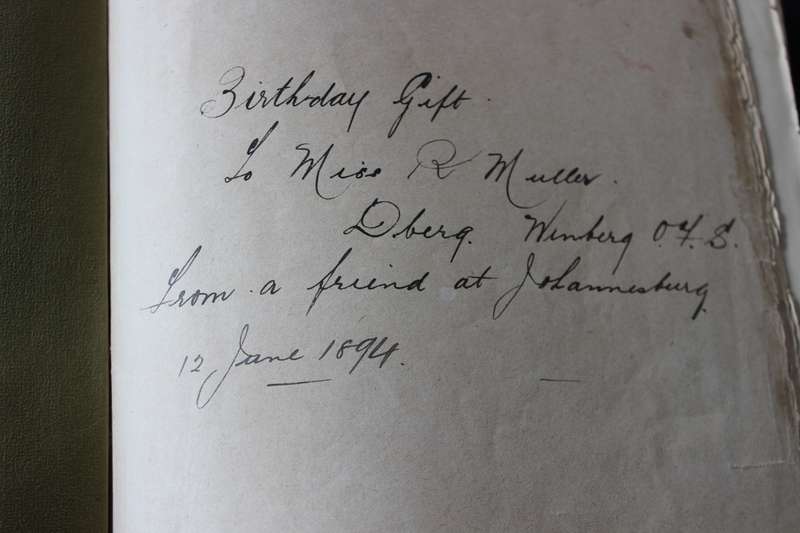 Birthday Gift.
To Miss R Muller.
Dberg. Winberg O.F.S.
From a friend at Johannesburg
12 June 1894.